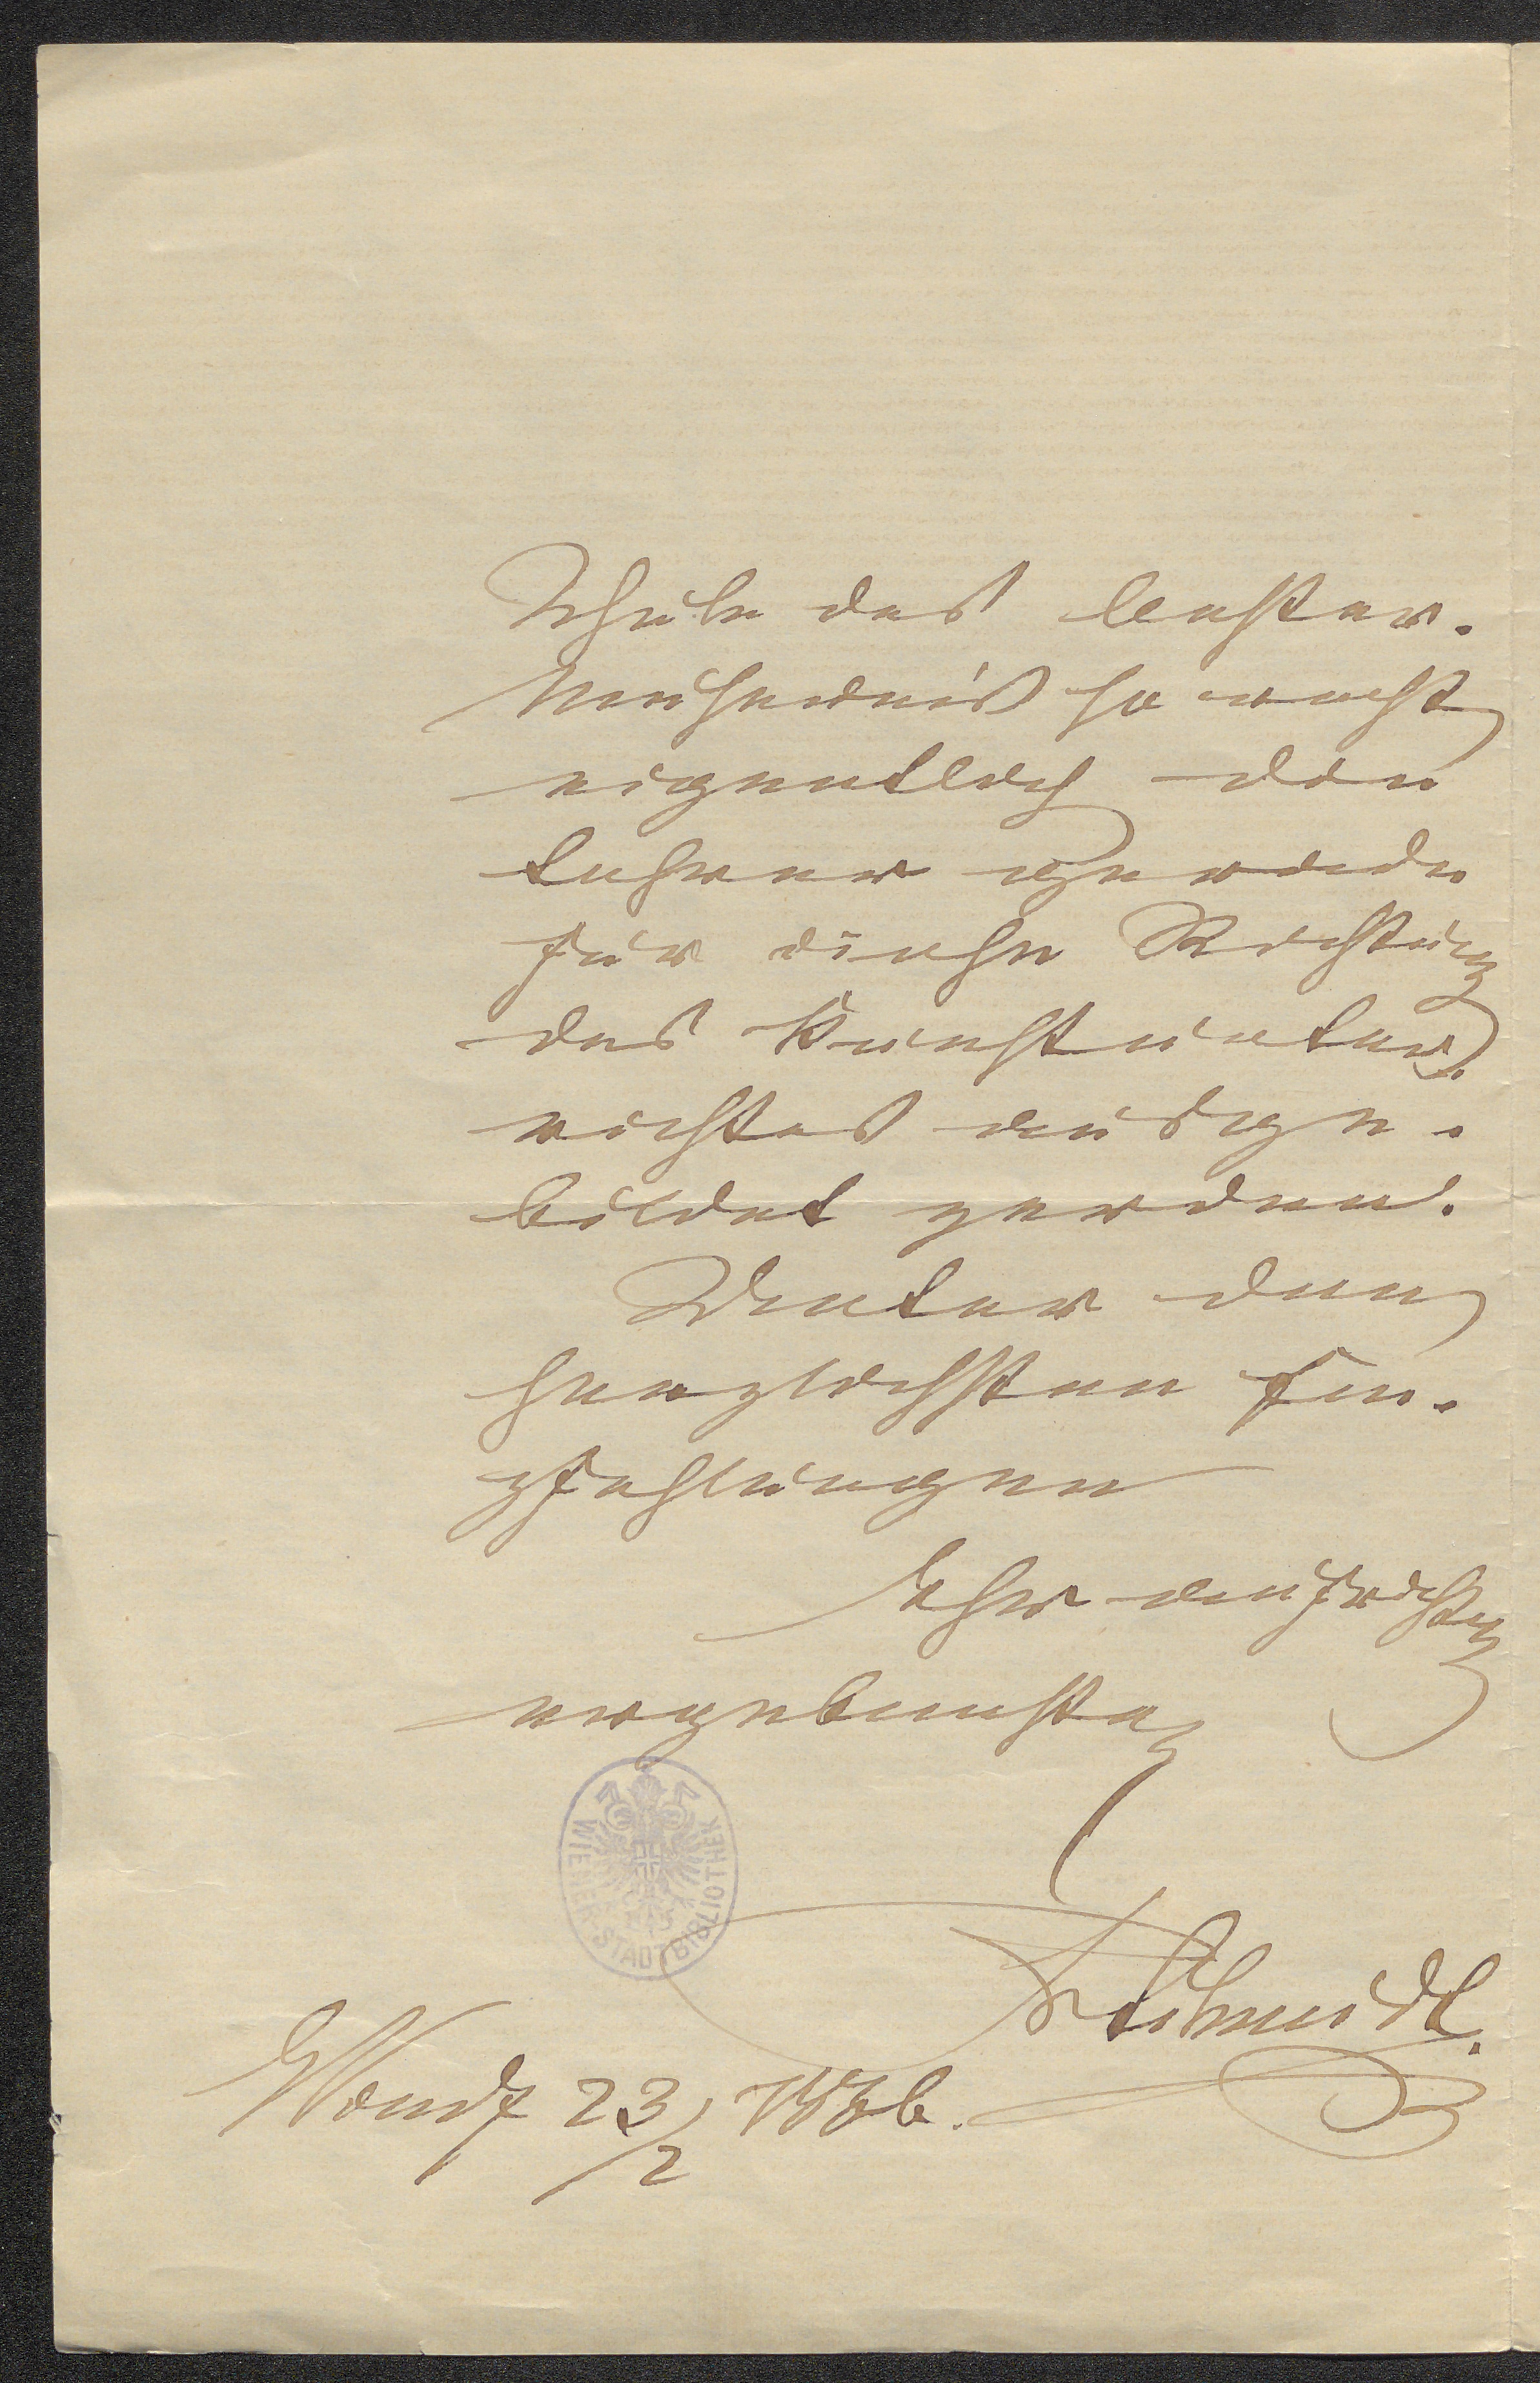 Schule des oester.
Museums so recht
eigentlich die
Lehrer gerade
für diese Richtung
des Kunstunter-
richtes ausge-
bildet werden.
Unter den
herzlichsten Em-
pfehlungen
Ihr aufrichtig
ergebenster
FrSchmidt.
Wien d 23/2 1886.
WIENER STADTBIBLIOTHEK